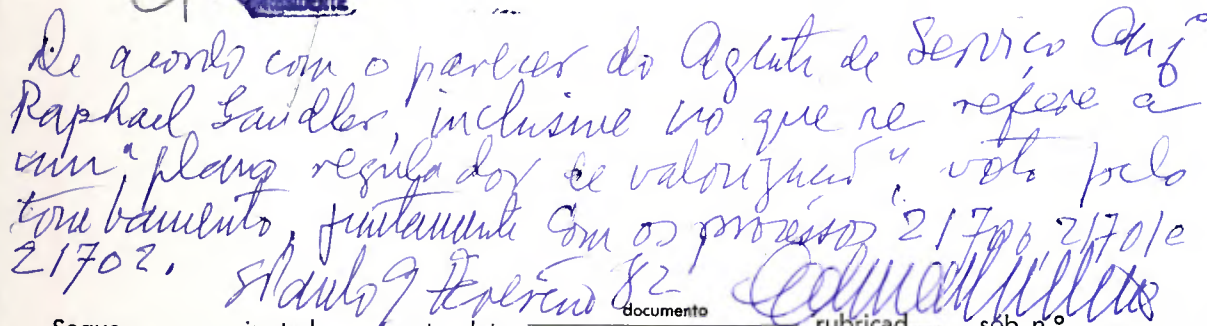 De acordo com o parecer do Agente de Serviço Arqº
Raphael Gendler, inclusive no que se refere a
um "plano regulador de valorização", voto pelo
tombamento, juntamente com os processos 21700, 21701 e
21702.
S Paulo 9 Fevereiro 82
documento
Segue rubricad sob n.º